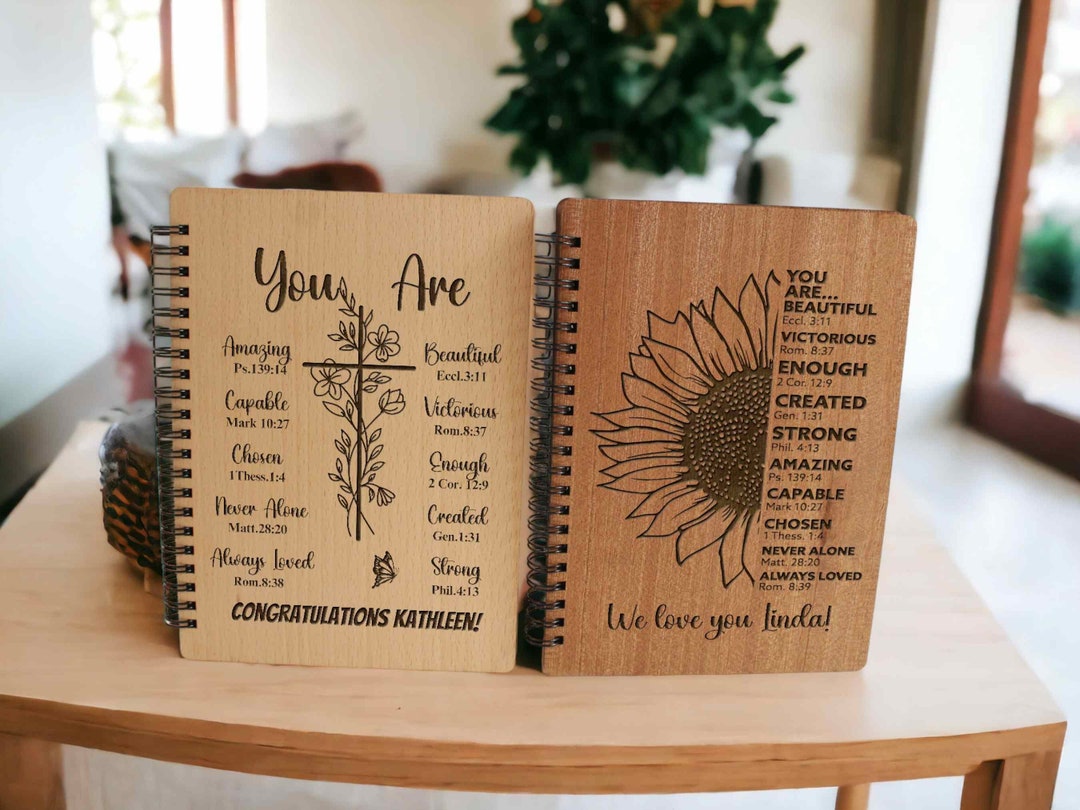 You Are
Amazing
Ps.139:14
Capable
Mark 10:27
Chosen
1Thess.1:4
Never Alone
Matt.28:20
Always Loved
Rom.8:38
Beautiful
Eccl.3:11
Victorious
Rom.8:37
Enough
2 Cor. 12:9
Created
Gen.1:31
Strong
Phil.4:13
CONGRATULATIONS KATHLEEN!
YOU
ARE...
BEAUTIFUL
Eccl. 3:11
VICTORIOUS
Rom. 8:37
ENOUGH
2 Cor. 12:9
CREATED
Gen. 1:31
STRONG
Phil. 4:13
AMAZING
Ps. 139:14
CAPABLE
Mark 10:27
CHOSEN
1 Thess. 1:4
NEVER ALONE
Matt. 28:20
ALWAYS LOVED
Rom. 8:39
We love you Linda!